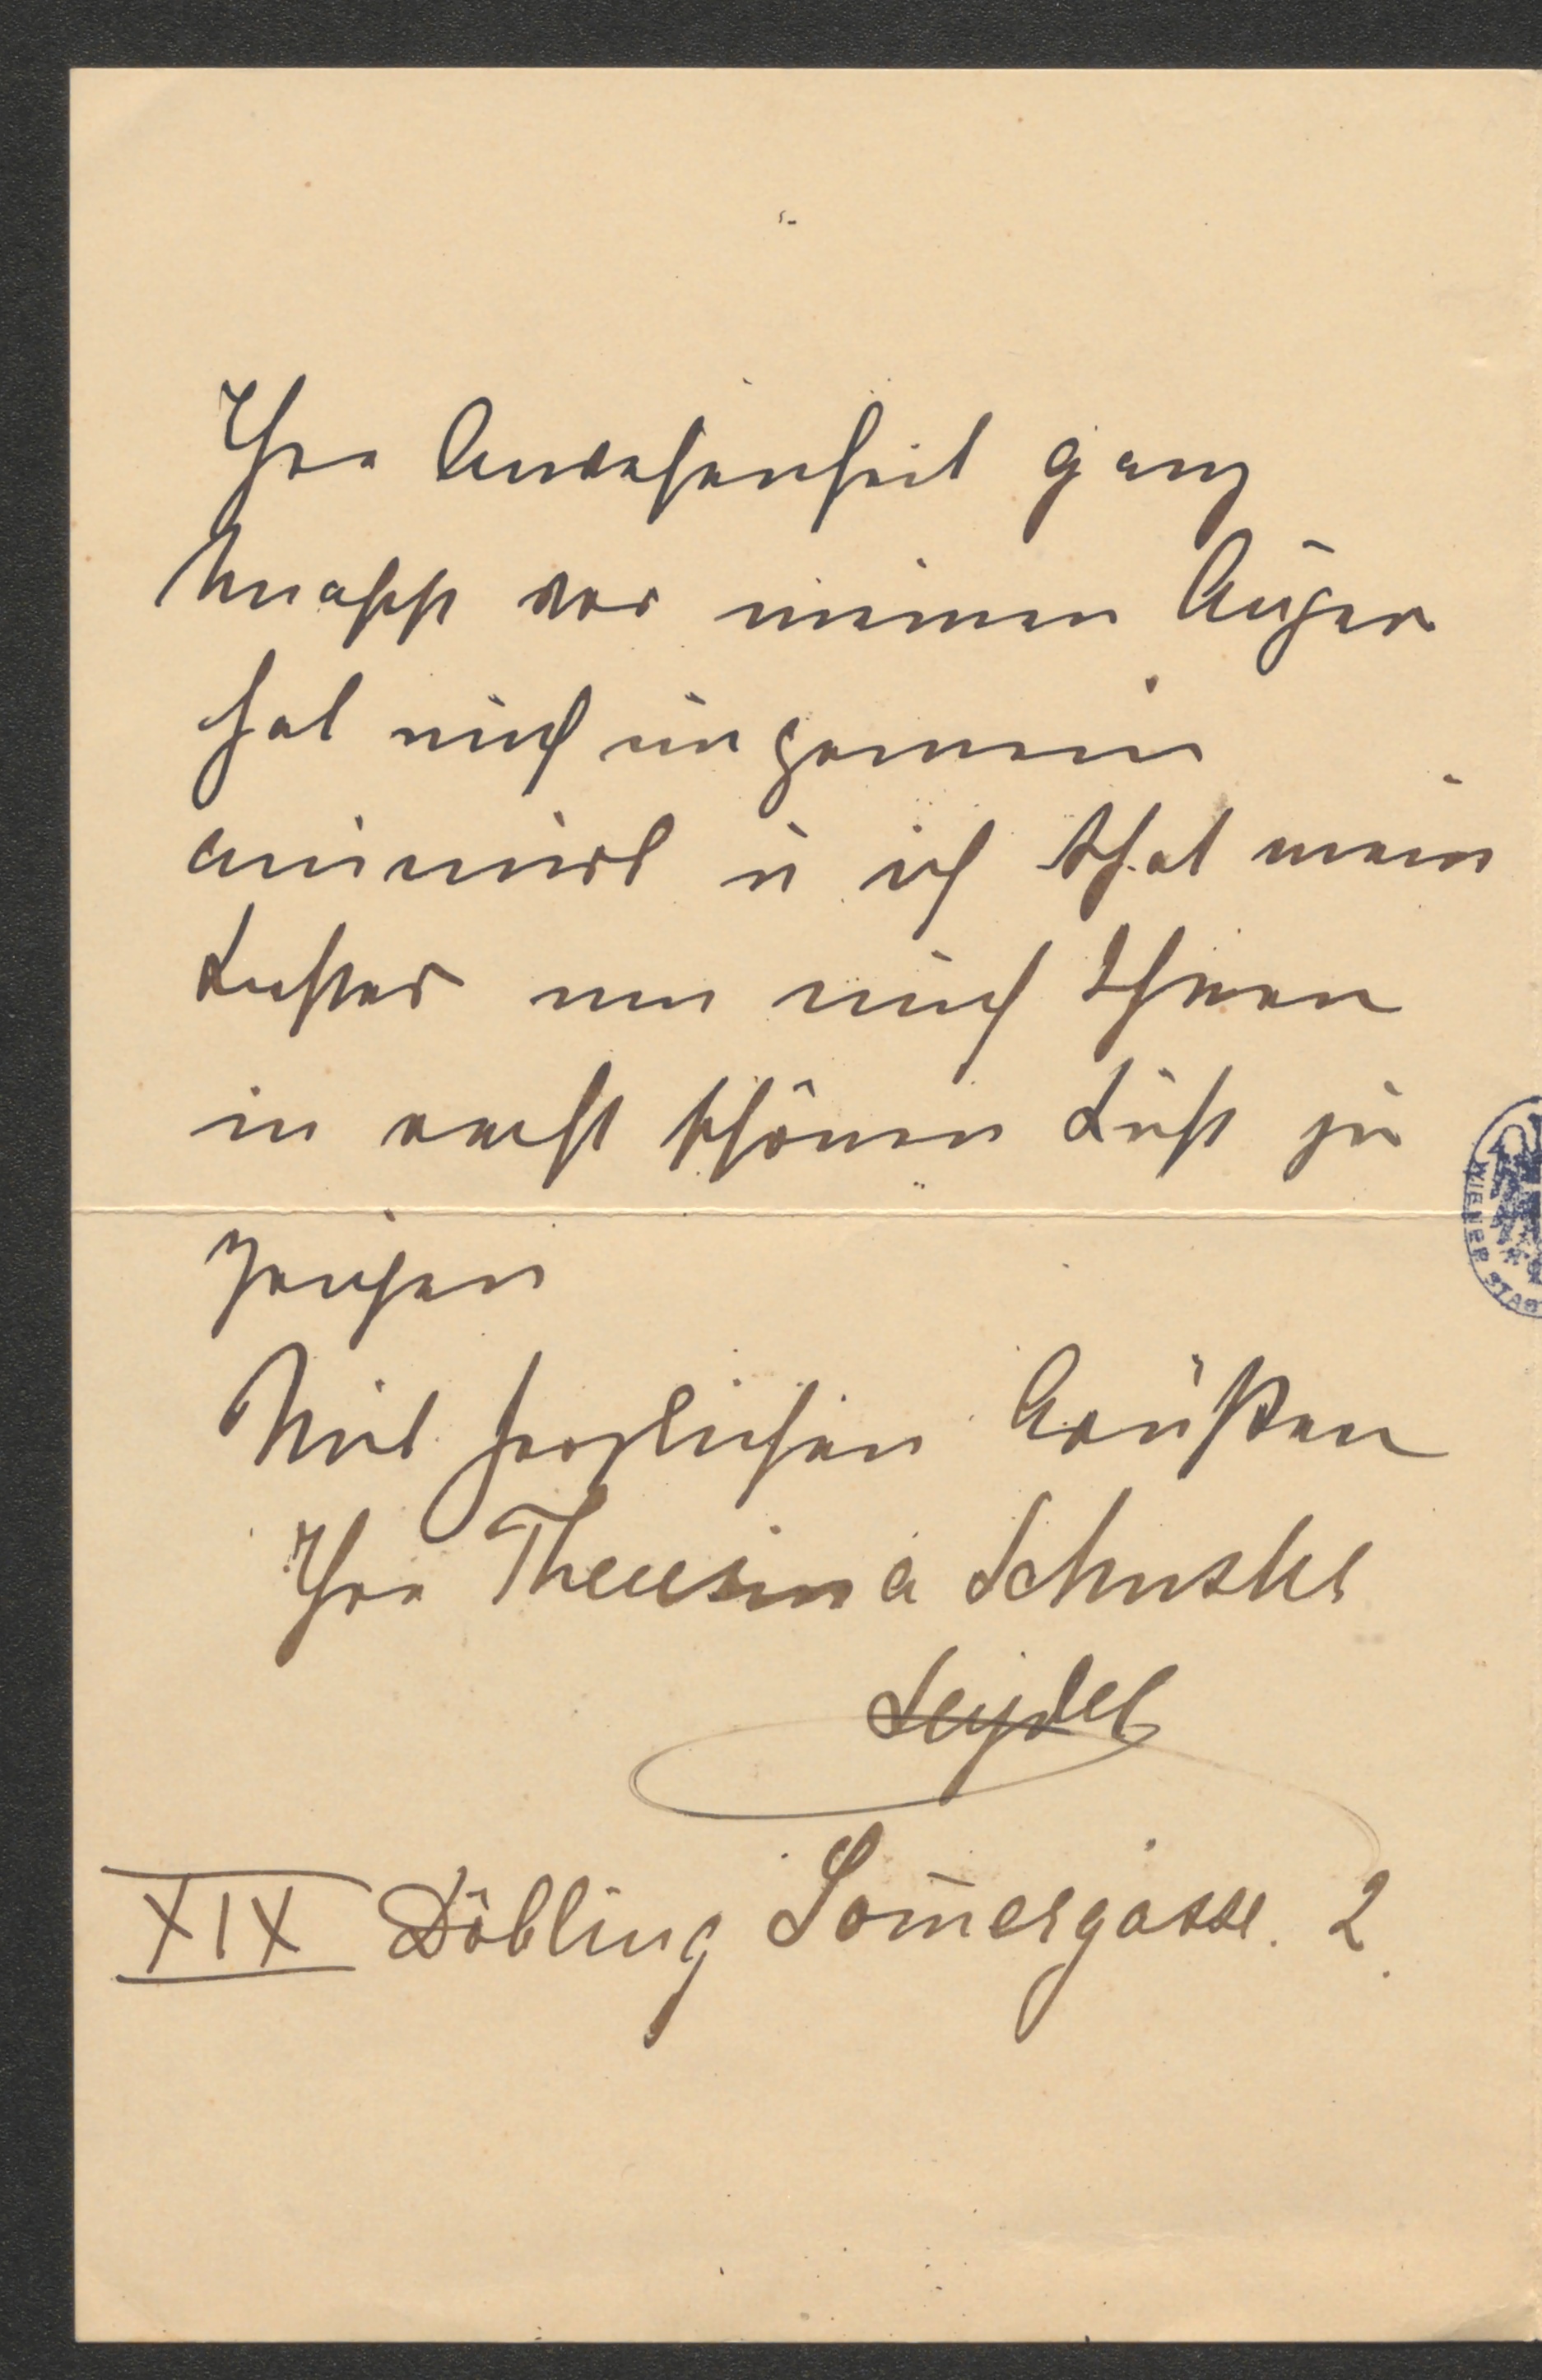 Ihre Anwesenheit ganz
knapp vor meinen Augen
hat mich ungemein
animirt u ich that mein
Bestes um mich Ihnen
in recht schönen Licht zu
zeigen
Mit herzlichen Grüßen
Ihre Theresina Schuster
Seydel
XIX Döbling Som̄ergasse. 2.
WIENER STAD